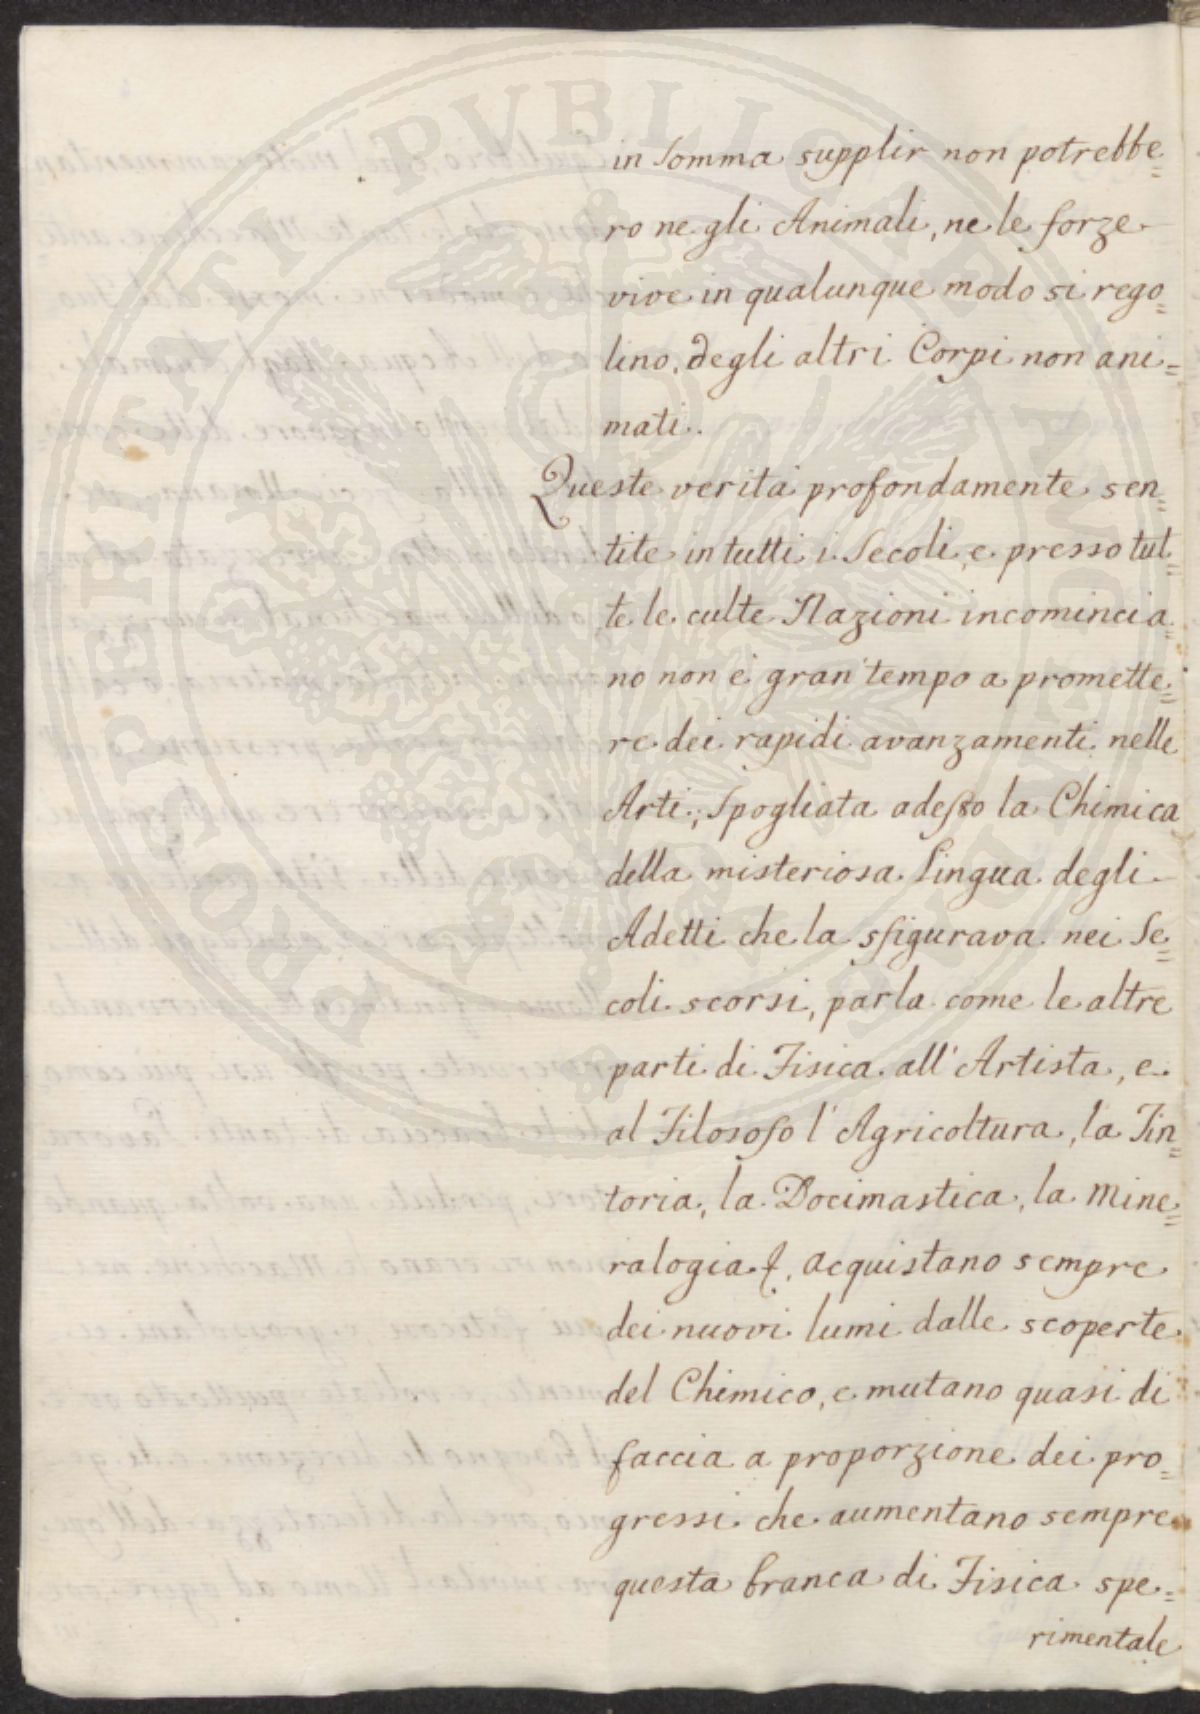 in somma supplir non potrebbe=
ro ne gli Animali, ne le forze
vive in qualunque modo si rego=
lino, degli altri Corpi non ani=
mati.
Queste verità profondamente sen=
tite in tutti i Secoli, e presso tut=
te le culte Nazioni incomincia=
no non è gran tempo a promette=
re dei rapidi avanzamenti nelle
Arti; Spogliata adesso la Chimica
della misteriosa Lingua degli
Adetti che la sfigurava nei Se=
coli scorsi, parla come le altre
parti di Fisica all'Artista, e
al Filosofo l'Agricoltura, la Tin=
toria, la Docimastica, la Mine=
ralogia &, acquistano sempre
dei nuovi lumi dalle scoperte
del Chimico, e mutano quasi di
faccia a proporzione dei pro=
gressi che aumentano sempre
questa branca di Fisica spe=
rimentale
PROSPERITATI PVBLICAE AVGENDAE